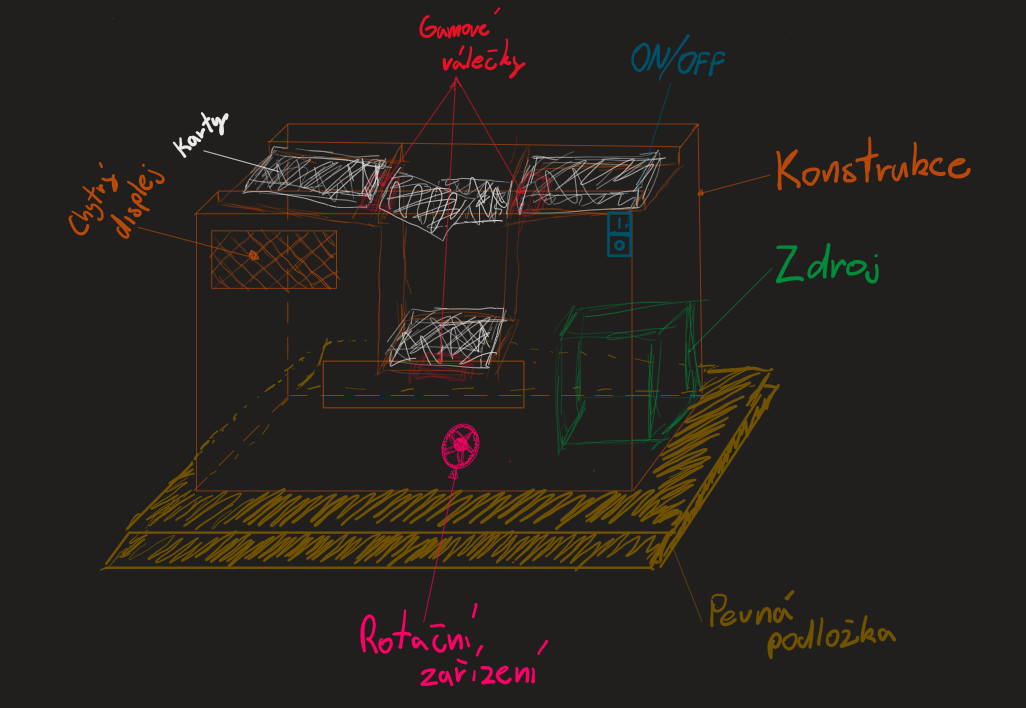 Gumové
válečky
ON/OFF
Karty
Chytrý
displej
Konstrukce
Zdroj
Rotační
zařízení
Pevná
podložka